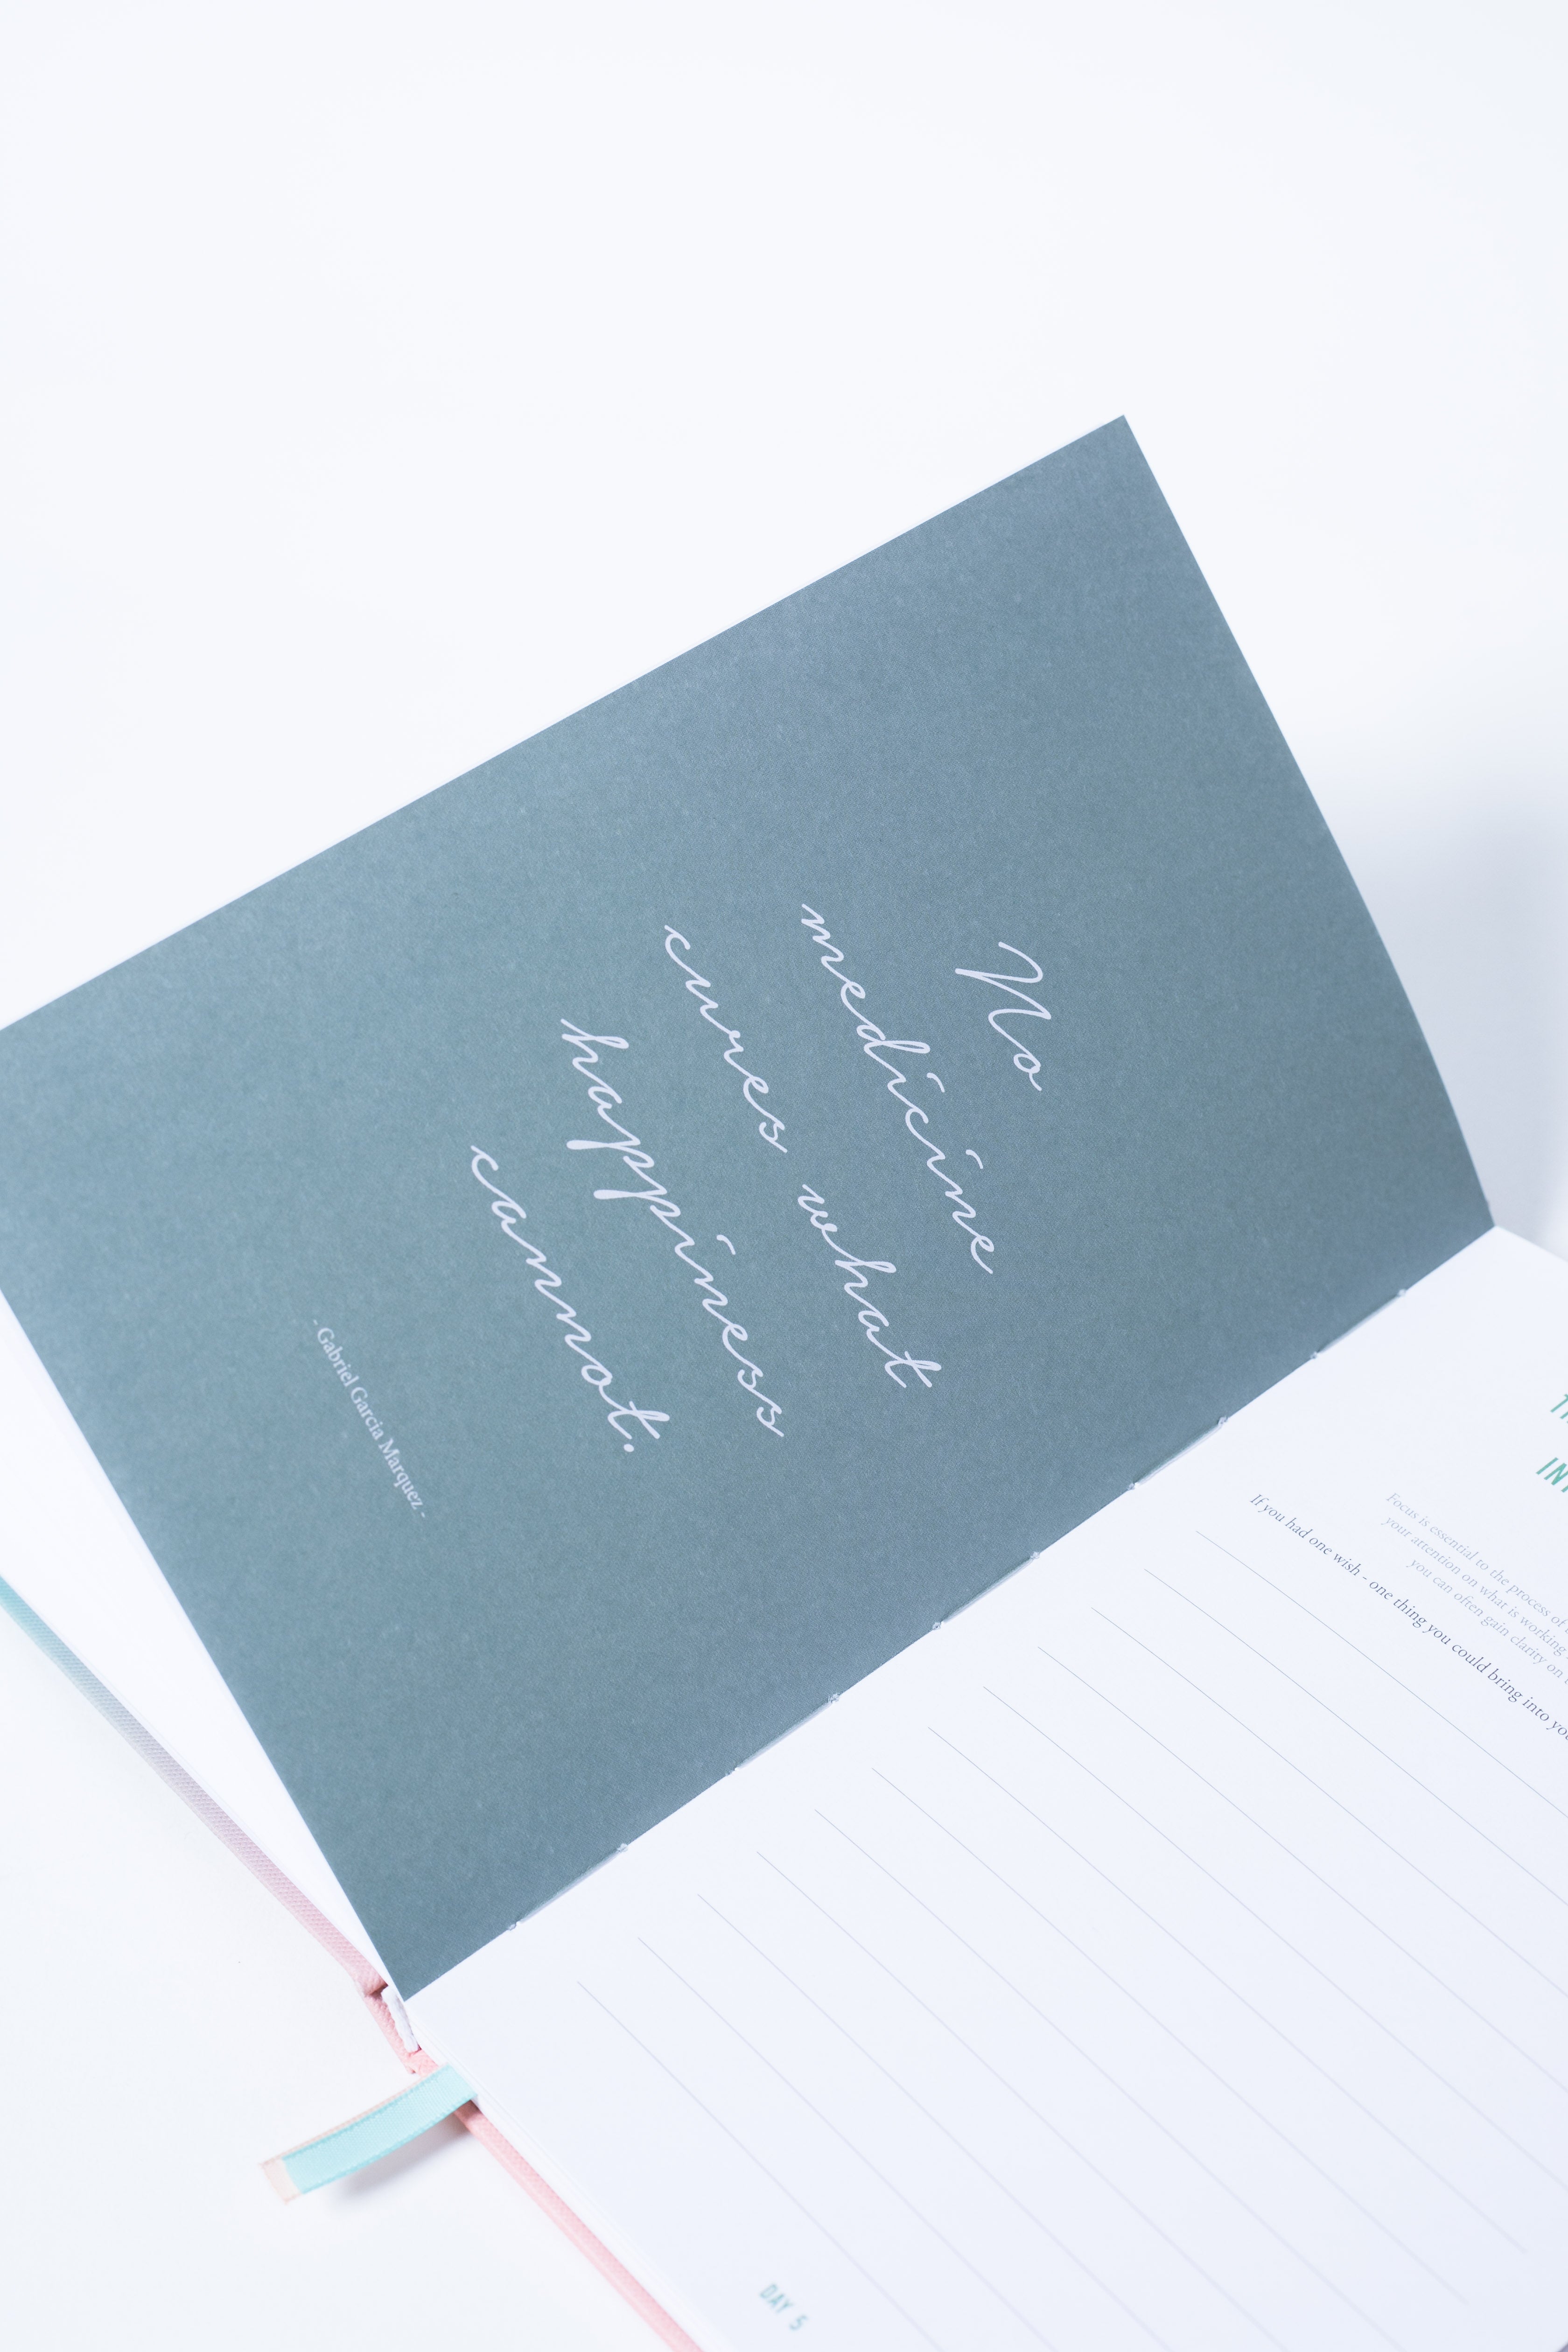 No
medicine
cures what
happiness
cannot.
- Gabriel Garcia Marquez -
Focus is essential to the process of
your attention on what is working
you can often gain clarity on
If you had one wish - one thing you could bring into
DAY 5